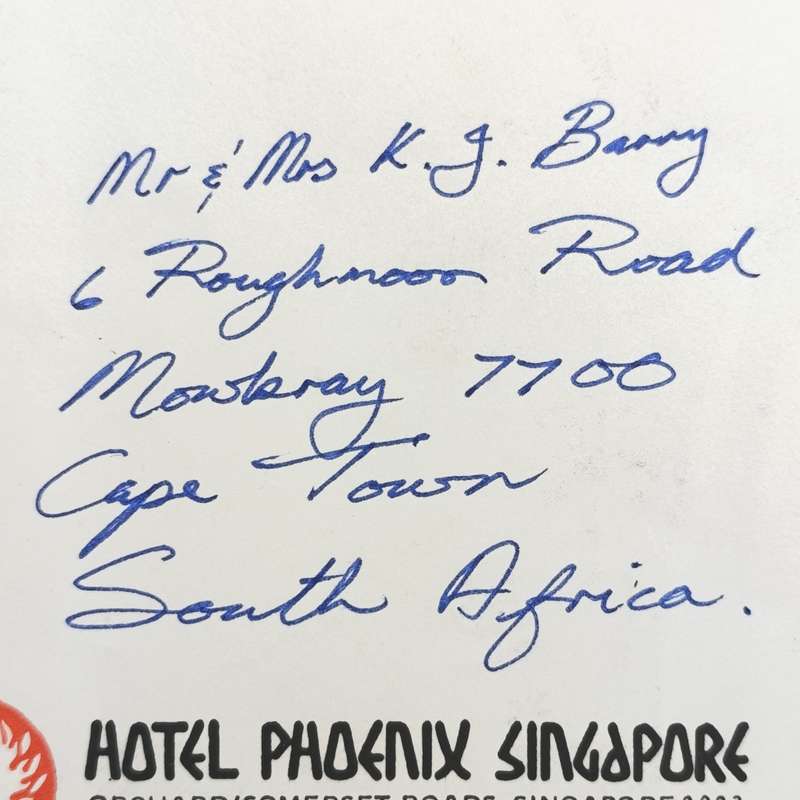 Mr & Mrs K. J. Barry
6 Roughmoor Road
Mowbray 7700
Cape Town
South Africa.
HOTEL PHOENIX SINGAPORE
ORCHARD/SOMERSET ROADS, SINGAPORE